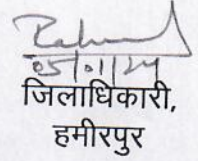 05/01/24
जिलाधिकारी,
हमीरपुर